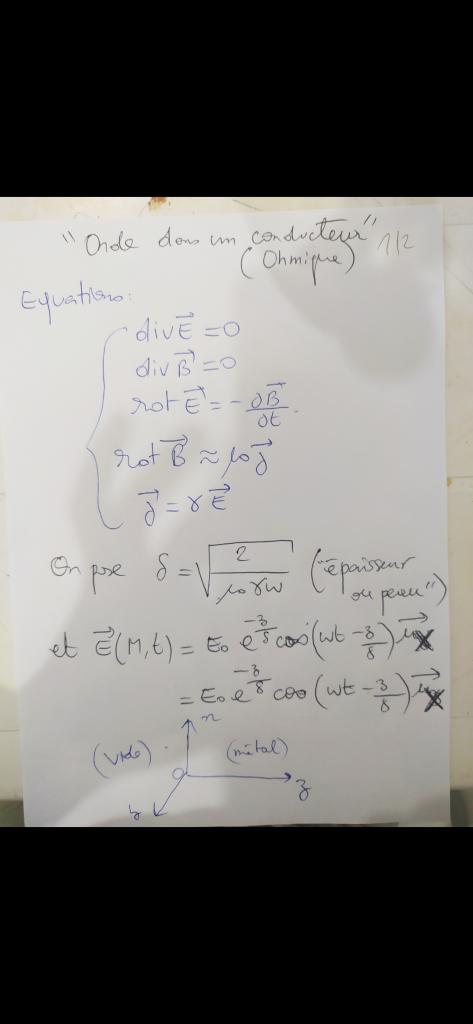 "Onde dans un conducteur" 1/2
(Ohmique)
Equations:
div E⃗ = 0
div B⃗ = 0
rot E⃗ = - ∂B⃗/∂t.
rot B⃗ ≈ μ₀ j⃗
j⃗ = γ E⃗
On pose δ = √(2/(μ₀γω)) ("épaisseur
ou peau")
et E⃗(M,t) = E₀ e^(-z/δ) cos(ωt - z/δ) u⃗x
= E₀ e^(-z/δ) cos(ωt - z/δ) u⃗x
x
(vide) O (métal)
z
y